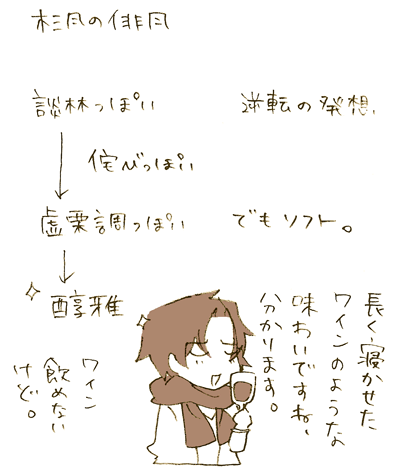 杉風の俳風
談林っぽい
逆転の発想、
侘びっぽい
虚栗調っぽい
でもソフト。
醇雅
長く寝かせた
ワインのような
味わいですね、
分かります。
ワイン
飲めない
けど。